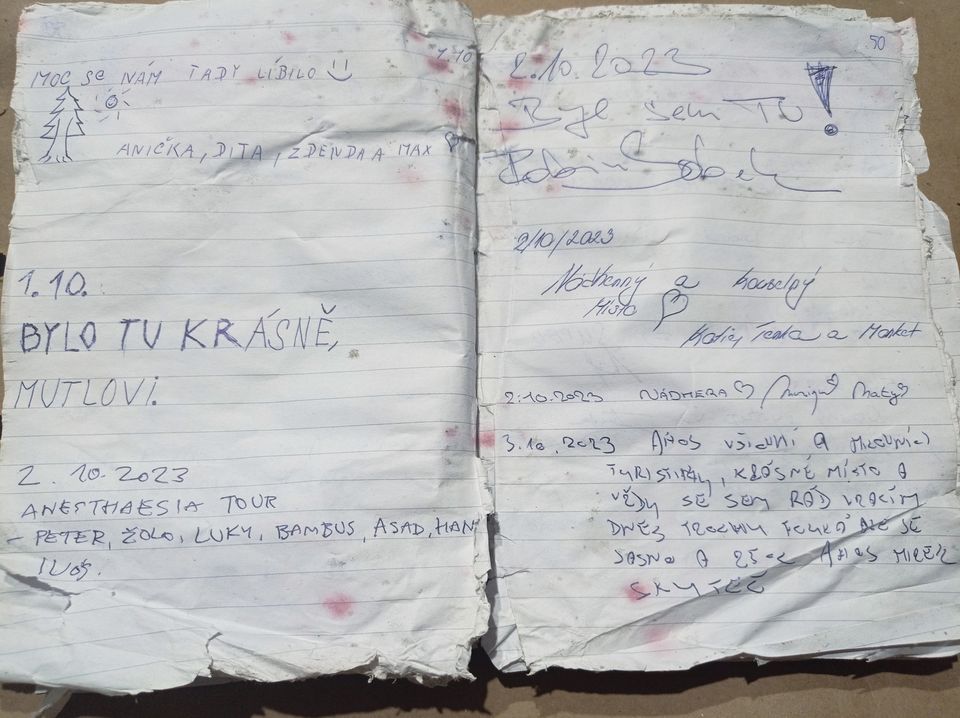 1.10
MOC SE NÁM TADY LÍBILO
ANIČKA, DITA, ZDENDA A MAX
1.10.
BYLO TU KRÁSNĚ,
MUTLOVI.
2. 10. 2023
ANESTHAESIA TOUR
- PETER, ŽOLO, LUKY, BAMBUS, ASAD, HAN
50
2.10.2023
Byl sem TU !
2/10/2023
Nádherný a kouzelný
Místo
Lenka a Market
2.10.2023 NÁDHERA
3.10.2023 AHOJ VŠICHNI A MILOVNÍCI
TURISTIKY, KRÁSNÉ MÍSTO A
VŽDY SE SEM RÁD VRACÍM
DNES TROCHU FOUKÁ ALE JE
JASNO A AHOJ MIREK
SKUTEČ